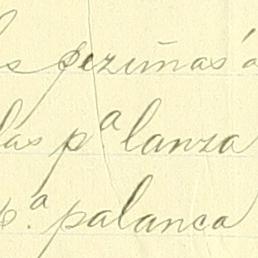 pezuñas á
las pª lanza
p.ª palanca